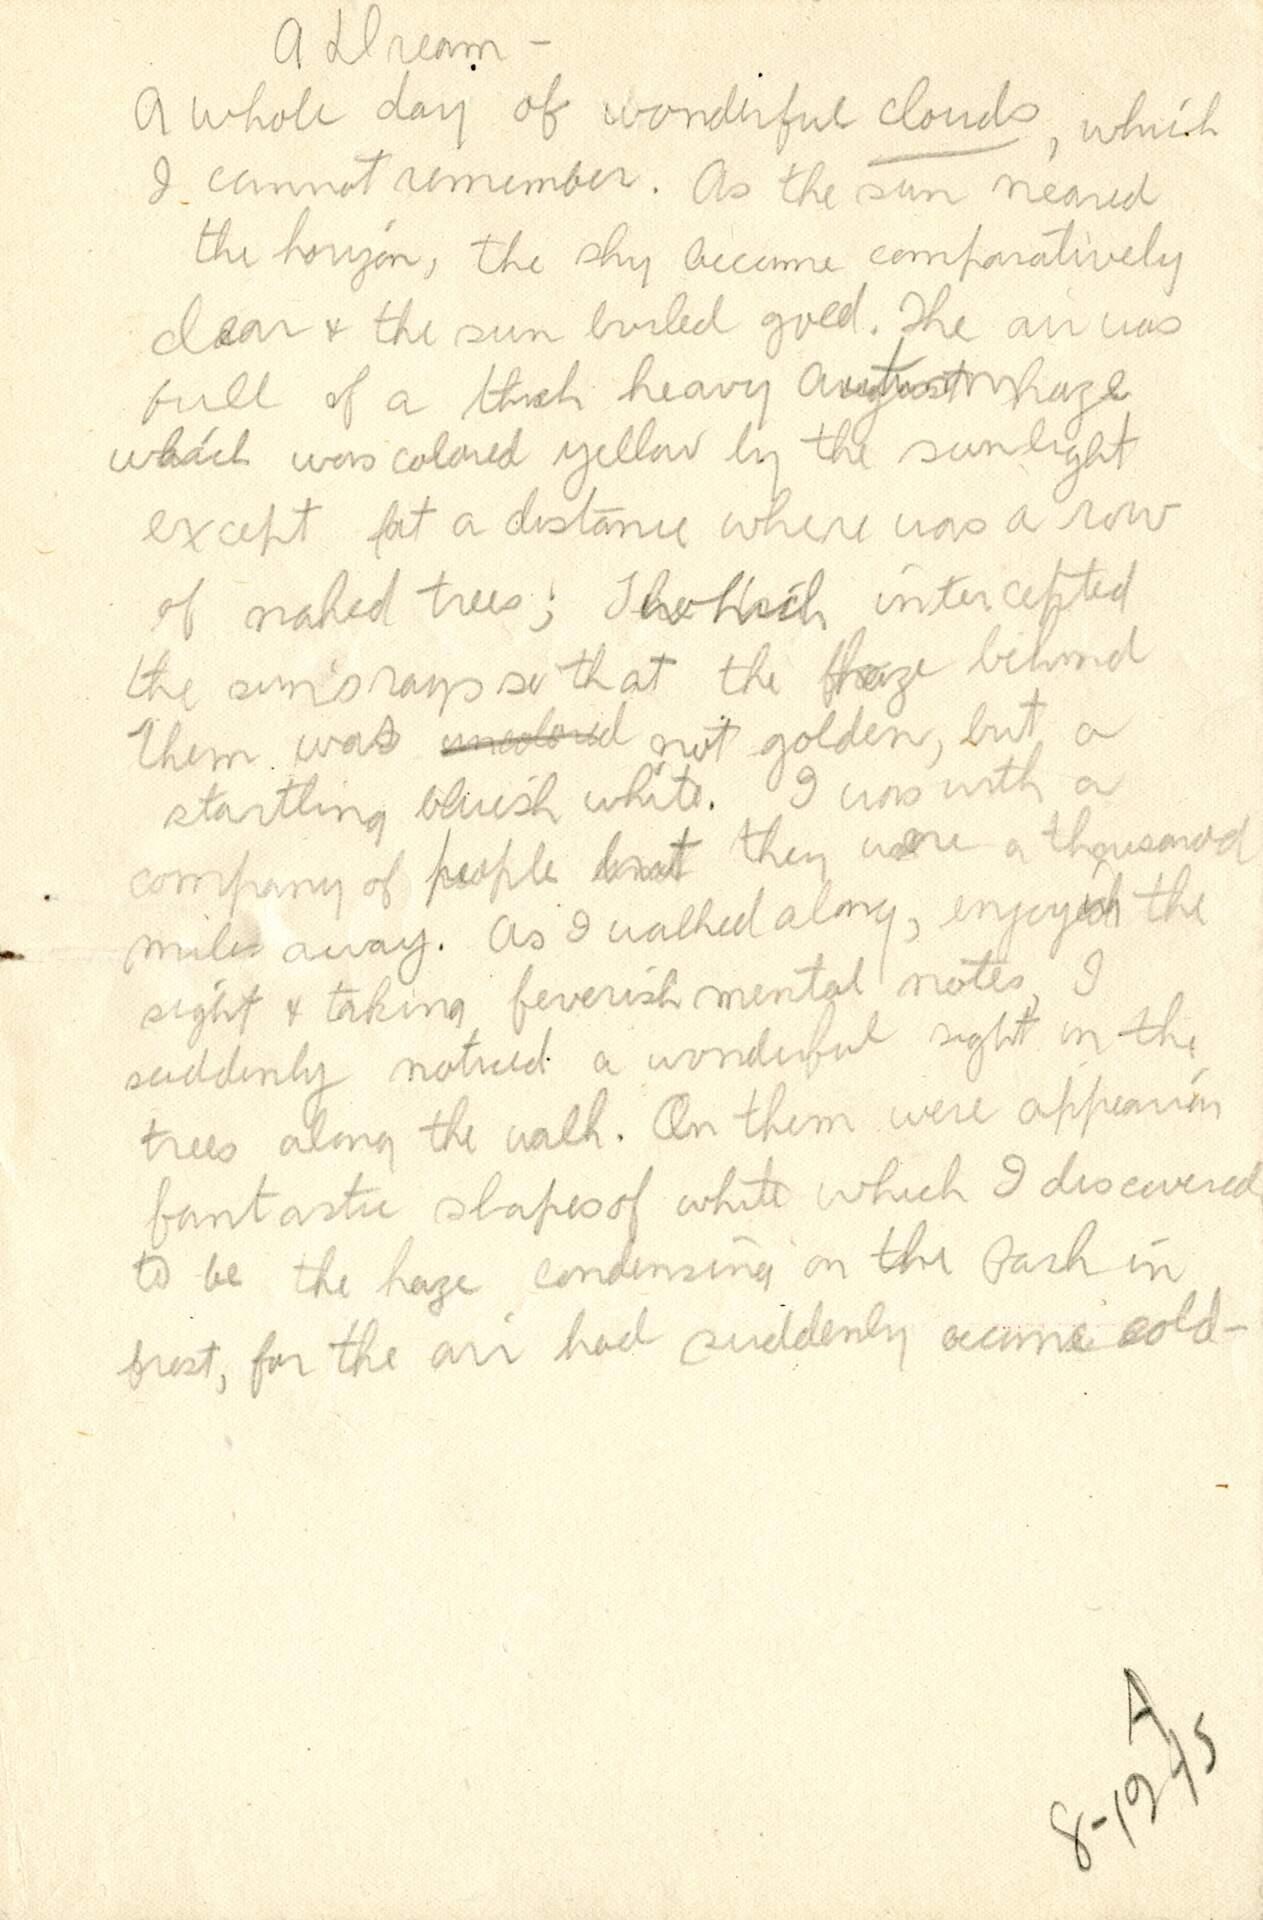 A Dream -
A whole day of wonderful clouds, which
I cannot remember. As the sun neared
the horizon, the sky became comparatively
clear & the sun boiled gold. The air was
full of a thick heavy haze
which was colored yellow by the sunlight
except at a distance where was a row
of naked trees; which intercepted
the sun's rays so that the haze behind
them was uncolored not golden, but a
startling bluish white. I was with a
company of people but they were a thousand
miles away. As I walked along, enjoying the
sight & taking feverish mental notes, I
suddenly noticed a wonderful sight in the
trees along the walk. On them were appearing
fantastic shapes of white which I discovered
to be the haze condensing on the bark in
frost, for the air had suddenly become cold-
A
8-1945